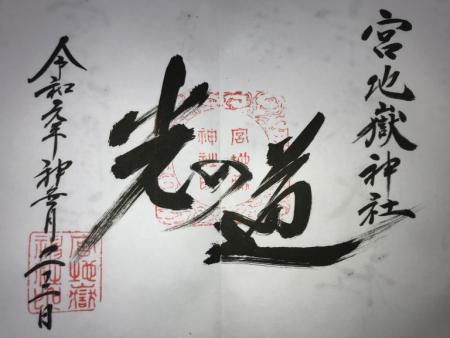 宮地嶽神社
光の道
令和元年神無月二日
宮地嶽神社印
宮地嶽神社印